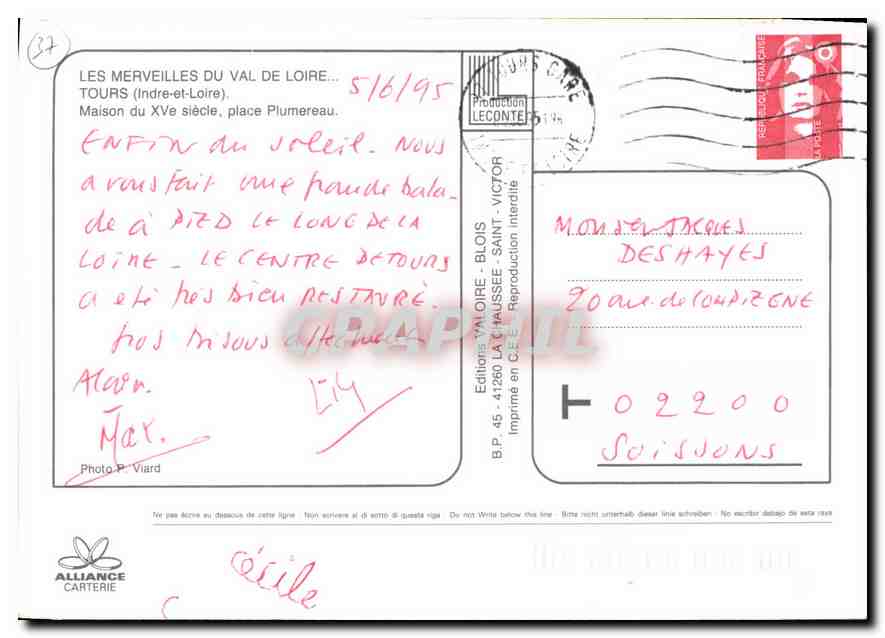 37
LES MERVEILLES DU VAL DE LOIRE...
TOURS (Indre-et-Loire).
Maison du XVe siècle, place Plumereau.
5/6/95
ENFIN du soleil. NOUS
avons fait une grande bala-
de à PIED LE LONG DE LA
LOIRE - LE CENTRE DE TOURS
a été très bien RESTAURÉ.
gros bisous affectueux
Alain.
Max.
Lily
Photo P. Viard
Cécile
Production
LECONTE
TOURS GARE
Editions VALOIRE - BLOIS
B.P. 45 - 41260 LA CHAUSSEE - SAINT - VICTOR
Imprimé en C.E.E. Reproduction interdite
RÉPUBLIQUE FRANÇAISE
LA POSTE
MONSIEUR JACQUES
DESHAYES
20 rue de
T
02200
SOISSONS
Ne pas écrire au dessous de cette ligne - Non scrivere al di sotto di questa riga - Do not Write below this line - Bitte nicht unterhalb dieser linie schreiben - No escribir debajo de esta raya
ALLIANCE
CARTERIE
CPAPHIL